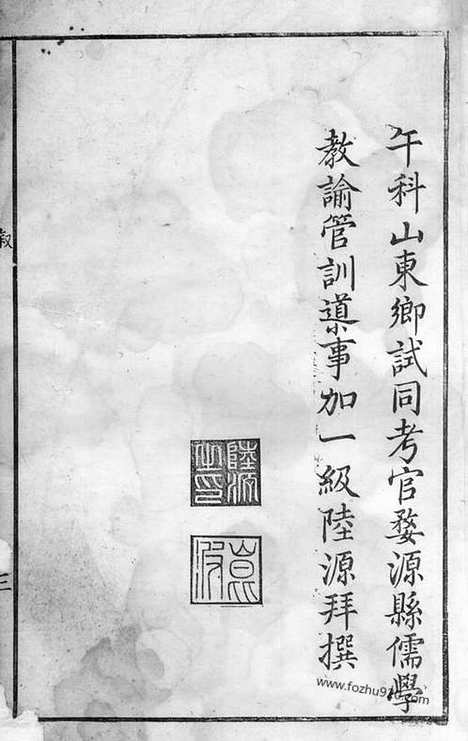 午科山東鄉試同考官婺源縣儒學
教諭管訓導事加一級陸源拜撰
陸源之印
三
www.fozhu920.com